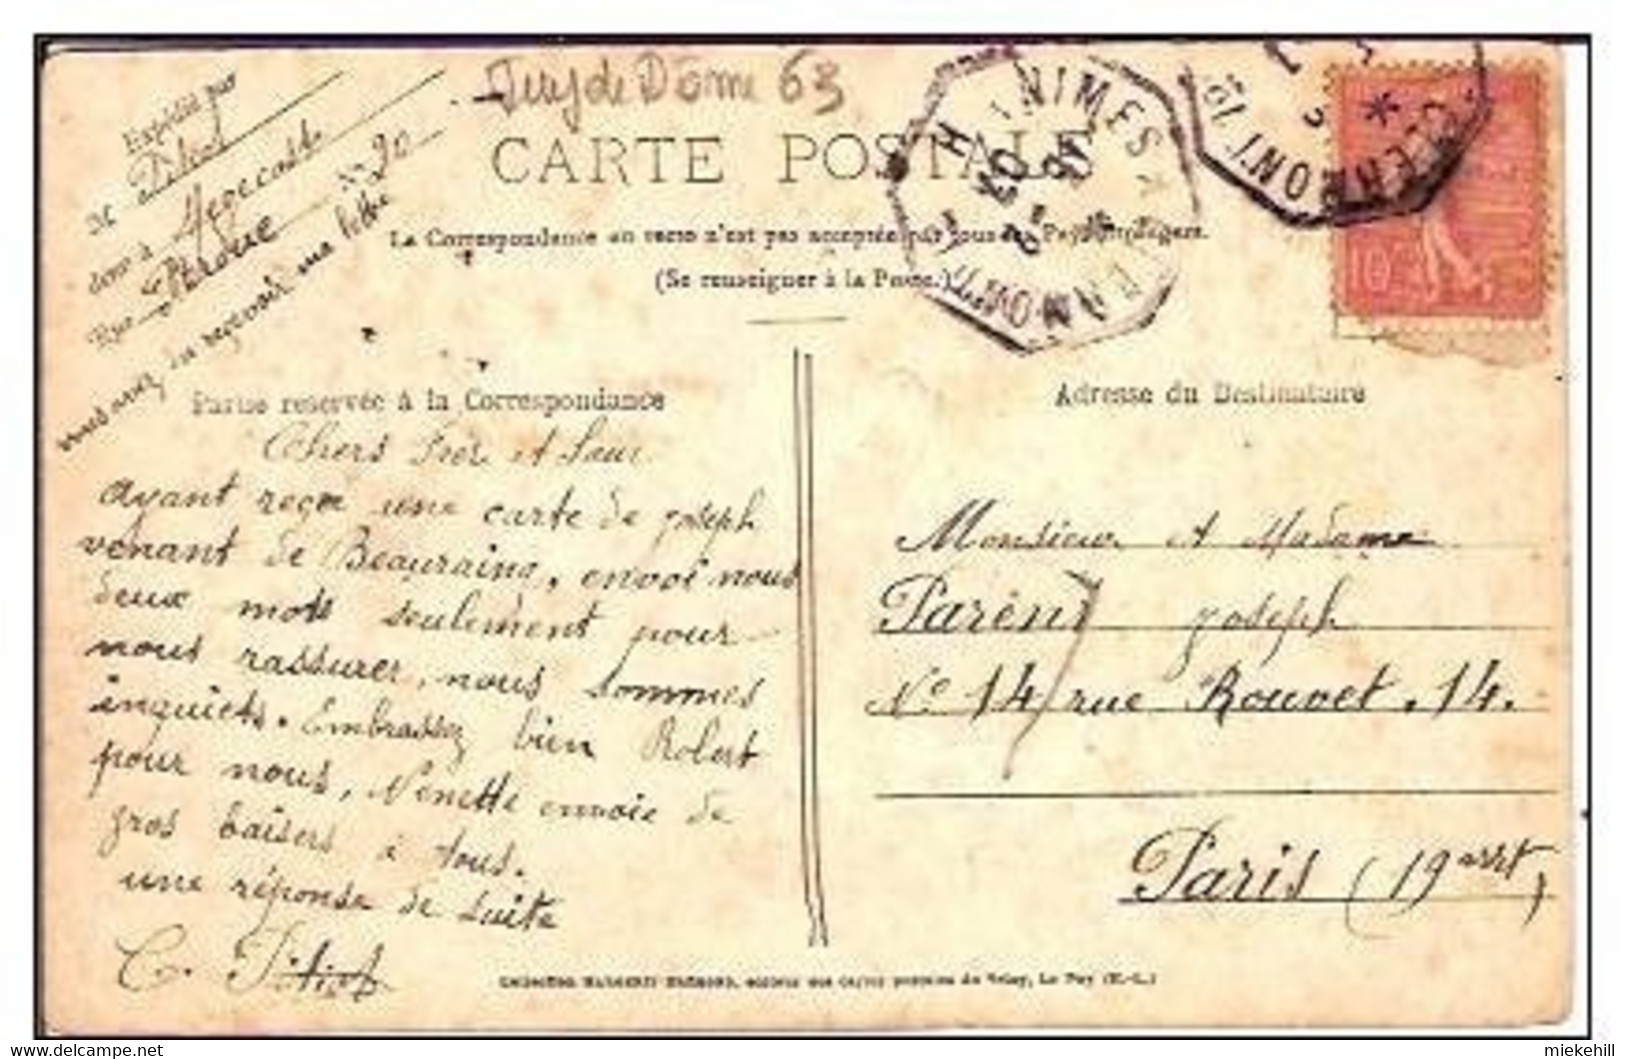 Puy de Dôme 63
Expédié par
M
demt à Megecoste
Rue No 20
vous avez du reçevoir ma lettre
CARTE POSTALE
La Correspondance au recto n'est pas acceptée par tous les Pays étrangers.
(Se renseigner à la Poste.)
NIMES A CLERMONT
CLERMONT
10
Partie reservée à la Correspondance
Adresse du Destinataire
Chers Frèr et Sœur
ayant reçu une carte de joseph
venant de Beauraing, envoi nous
deux mots seulement pour
nous rassurer, nous sommes
inquiets. Embrassez bien Robert
pour nous, Nénette envoie de
gros baisers à tous.
une réponse de suite
C.
Monsieur et Madame
Parent joseph
No 14 rue Rouvet . 14.
Paris (19 arrt)
Collection éditeur des cartes postales du Velay, Le Puy (H.-L.)
miekehill